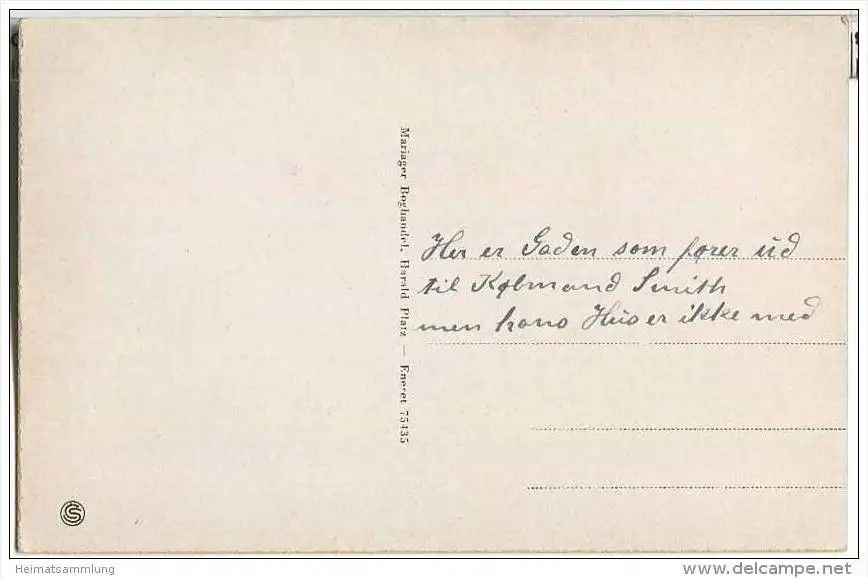 Mariager Boghandel. Harald Platz — Eneret 75435
Her er Gaden som fører ud
til Købmand Smith
men hans Hus er ikke med
CS
Heimatsammlung
www.delcampe.net